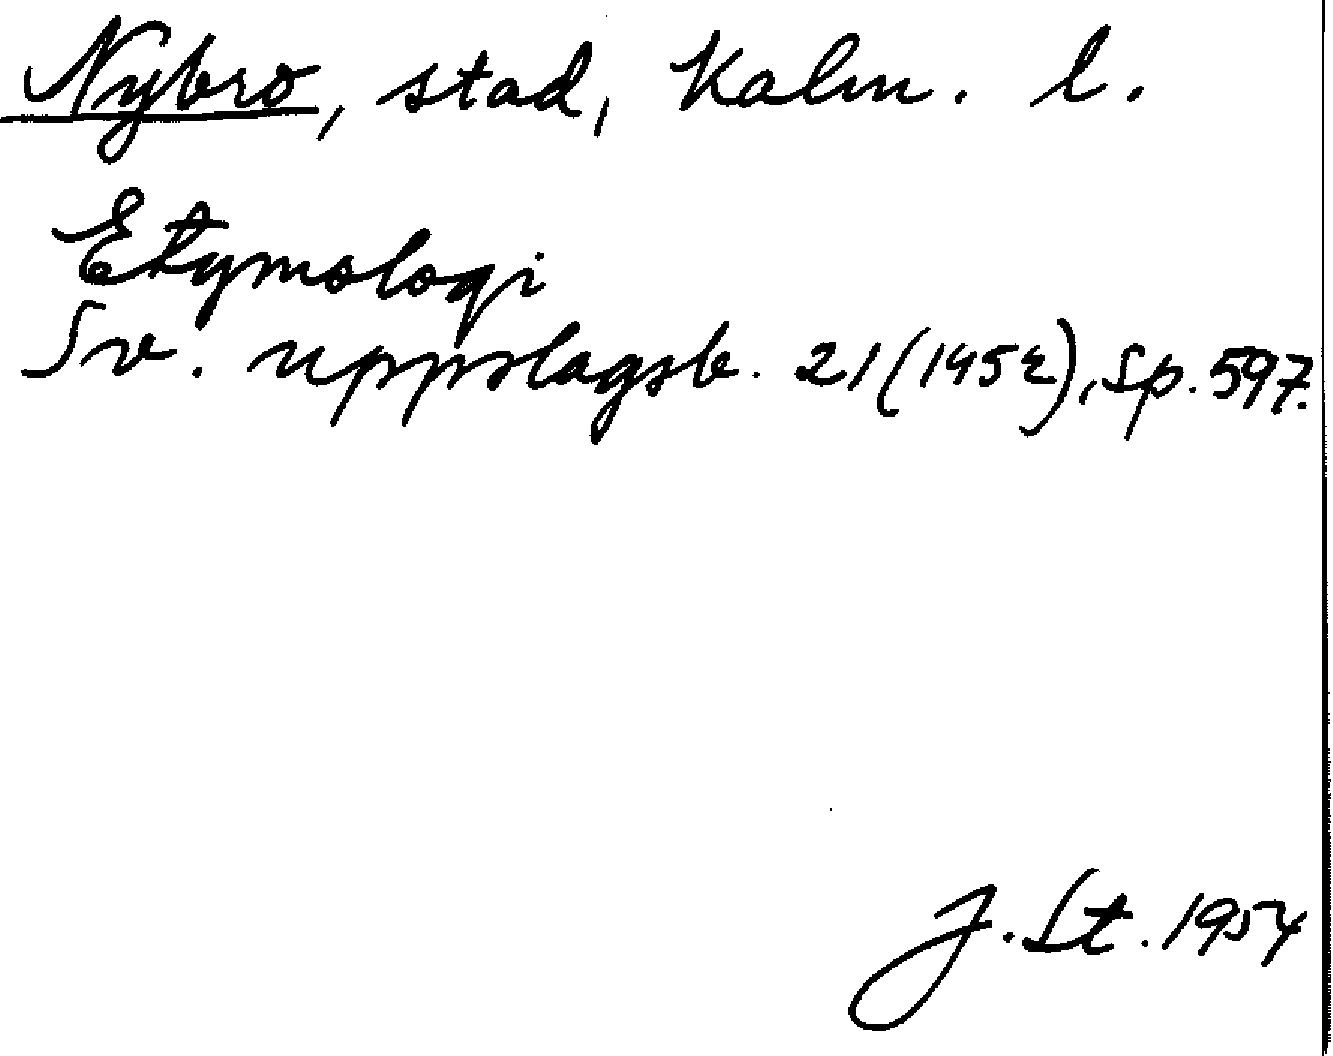 Nybro, stad, Kalm. l.
Etymologi
Sv. uppslagsb. 21 (1952), sp. 597.
J. St. 1954